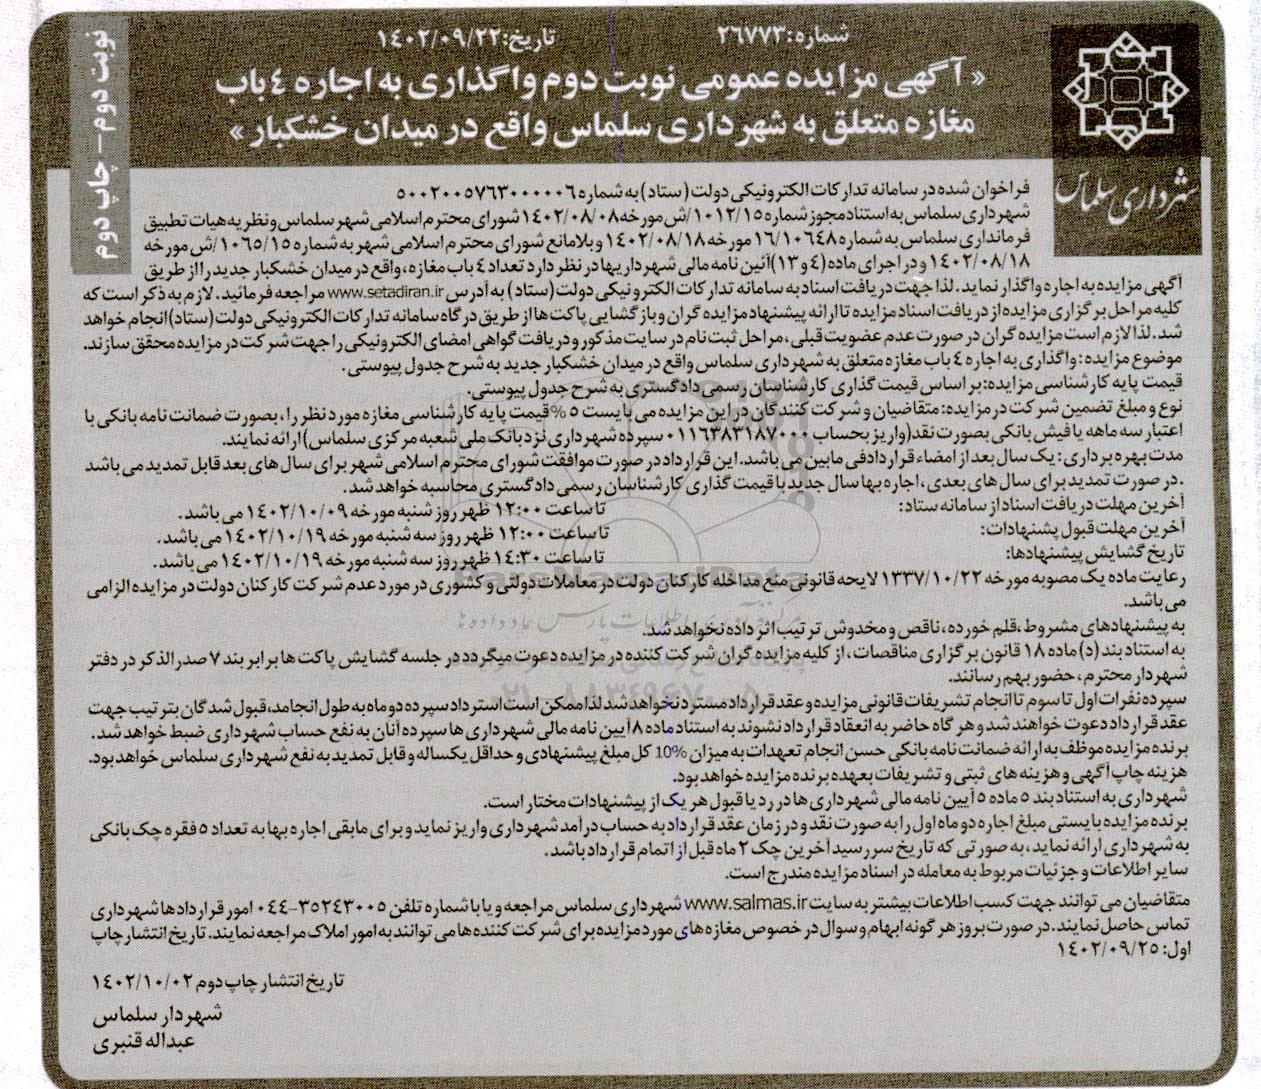 شماره: ۲۶۷۷۳
تاریخ: ۱۴۰۲/۰۹/۲۲
نوبت دوم – چاپ دوم
« آگهی مزایده عمومی نوبت دوم واگذاری به اجاره ٤ باب
مغازه متعلق به شهرداری سلماس واقع در میدان خشکبار »
شهرداری سلماس
فراخوان شده در سامانه تدارکات الکترونیکی دولت (ستاد) به شماره ۵۰۰۲۰۰۵۷۶۳۰۰۰۰۰۶
شهرداری سلماس به استناد مجوز شماره ۱۰۱۲/۱۵/ش مورخه ۱۴۰۲/۰۸/۰۸ شورای محترم اسلامی شهر سلماس و نظریه هیات تطبیق
فرمانداری سلماس به شماره ۱۶/۱۰۶۴۸ مورخه ۱۴۰۲/۰۸/۱۸ و بلامانع شورای محترم اسلامی شهر به شماره ۱۰۶۵/۱۵/ش مورخه
۱۴۰۲/۰۸/۱۸ و در اجرای ماده (۴ و ۱۳) آئین نامه مالی شهرداریها در نظر دارد تعداد ٤ باب مغازه، واقع در میدان خشکبار جدید را از طریق
آگهی مزایده به اجاره واگذار نماید. لذا جهت دریافت اسناد به سامانه تدارکات الکترونیکی دولت (ستاد) به آدرس www.setadiran.ir مراجعه فرمائید. لازم به ذکر است که
کلیه مراحل برگزاری مزایده از دریافت اسناد مزایده تا ارائه پیشنهاد مزایده گران و بازگشایی پاکت ها از طریق درگاه سامانه تدارکات الکترونیکی دولت (ستاد) انجام خواهد
شد. لذا لازم است مزایده گران در صورت عدم عضویت قبلی، مراحل ثبت نام در سایت مذکور و دریافت گواهی امضای الکترونیکی را جهت شرکت در مزایده محقق سازند.
موضوع مزایده: واگذاری به اجاره ٤ باب مغازه متعلق به شهرداری سلماس واقع در میدان خشکبار جدید به شرح جدول پیوستی.
قیمت پایه کارشناسی مزایده: بر اساس قیمت گذاری کارشناسان رسمی دادگستری به شرح جدول پیوستی.
نوع و مبلغ تضمین شرکت در مزایده: متقاضیان و شرکت کنندگان در این مزایده می بایست ۵ % قیمت پایه کارشناسی مغازه مورد نظر را، بصورت ضمانت نامه بانکی با
اعتبار سه ماهه یا فیش بانکی بصورت نقد (واریز بحساب ۰۱۱۶۳۸۳۱۸۷۰۰۰ سپرده شهرداری نزد بانک ملی شعبه مرکزی سلماس) ارائه نمایند.
مدت بهره برداری: یک سال بعد از امضاء قرارداد فی مابین می باشد. این قرارداد در صورت موافقت شورای محترم اسلامی شهر برای سال های بعد قابل تمدید می باشد
. در صورت تمدید برای سال های بعدی، اجاره بها سال جدید با قیمت گذاری کارشناسان رسمی دادگستری محاسبه خواهد شد.
آخرین مهلت دریافت اسناد از سامانه ستاد: تا ساعت ۱۲:۰۰ ظهر روز شنبه مورخه ۱۴۰۲/۱۰/۰۹ می باشد.
آخرین مهلت قبول پشنهادات: تا ساعت ۱۲:۰۰ ظهر روز سه شنبه مورخه ۱۴۰۲/۱۰/۱۹ می باشد.
تاریخ گشایش پیشنهادها: تا ساعت ۱۴:۳۰ ظهر روز سه شنبه مورخه ۱۴۰۲/۱۰/۱۹ می باشد.
رعایت ماده یک مصوبه مورخه ۱۳۳۷/۱۰/۲۲ لایحه قانونی منع مداخله کارکنان دولت در معاملات دولتی و کشوری در مورد عدم شرکت کارکنان دولت در مزایده الزامی
می باشد.
به پیشنهادهای مشروط، قلم خورده، ناقص و مخدوش ترتیب اثر داده نخواهد شد.
به استناد بند (د) ماده ۱۸ قانون برگزاری مناقصات، از کلیه مزایده گران شرکت کننده در مزایده دعوت میگردد در جلسه گشایش پاکت ها برابر بند ۷ صدرالذکر در دفتر
شهردار محترم، حضور بهم رسانند.
سپرده نفرات اول تا سوم تا انجام تشریفات قانونی مزایده و عقد قرارداد مسترد نخواهد شد لذا ممکن است استرداد سپرده دو ماه به طول انجامد، قبول شدگان بترتیب جهت
عقد قرارداد دعوت خواهند شد و هر گاه حاضر به انعقاد قرارداد نشوند به استناد ماده ۸ آیین نامه مالی شهرداری ها سپرده آنان به نفع حساب شهرداری ضبط خواهد شد.
برنده مزایده موظف به ارائه ضمانت نامه بانکی حسن انجام تعهدات به میزان 10% کل مبلغ پیشنهادی و حداقل یکساله و قابل تمدید به نفع شهرداری سلماس خواهد بود.
هزینه چاپ آگهی و هزینه های ثبتی و تشریفات بعهده برنده مزایده خواهد بود.
شهرداری به استناد بند ۵ ماده ۵ آیین نامه مالی شهرداری ها در رد یا قبول هر یک از پیشنهادات مختار است.
برنده مزایده بایستی مبلغ اجاره دو ماه اول را به صورت نقد و در زمان عقد قرارداد به حساب درآمد شهرداری واریز نماید و برای مابقی اجاره بها به تعداد ۵ فقره چک بانکی
به شهرداری ارائه نماید، به صورتی که تاریخ سررسید آخرین چک ۲ ماه قبل از اتمام قرارداد باشد.
سایر اطلاعات و جزئیات مربوط به معامله در اسناد مزایده مندرج است.
متقاضیان می توانند جهت کسب اطلاعات بیشتر به سایت www.salmas.ir شهرداری سلماس مراجعه و یا با شماره تلفن ۳۵۲۴۳۰۰۵-۰۴۴ امور قراردادها شهرداری
تماس حاصل نمایند. در صورت بروز هر گونه ابهام و سوال در خصوص مغازه های مورد مزایده برای شرکت کننده ها می توانند به امور املاک مراجعه نمایند. تاریخ انتشار چاپ
اول: ۱۴۰۲/۰۹/۲۵
تاریخ انتشار چاپ دوم ۱۴۰۲/۱۰/۰۲
شهردار سلماس
عبداله قنبری